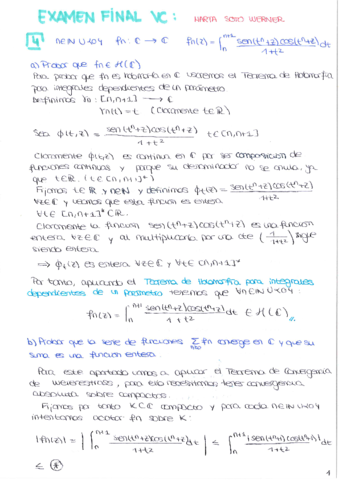 EXAMEN FINAL VC: MARTA SOTO WERNER
4 n∈ℕ∪{0} fn: ℂ → ℂ fn(z) = ∫_n^{n+1} sen(t^n+z)cos(t^n+z)/(1+t²) dt
a) Probar que fn ∈ H(ℂ)
Para probar que fn es holomorfa en ℂ usaremos el Teorema de Holomorfía
para integrales dependientes de un parámetro.
Definimos γn: [n,n+1] → ℂ
γn(t) = t (claramente t∈ℝ)
Sea φ(t,z) = sen(t^n+z)cos(t^n+z)/(1+t²) t∈[n,n+1]
Claramente φ(t,z) es continua en ℂ por ser composición de
funciones continuas y porque su denominador no se anula, ya
que t∈ℝ. (t∈[n,n+1]*)
Fijamos t∈ℝ y n∈ℕ y definimos φt(z) = sen(t^n+z)cos(t^n+z)/(1+t²)
∀z∈ℂ y veamos que esta función es entera
∀t∈[n,n+1]*⊂ℝ.
Claramente la función sen(t^n+z)cos(t^n+z) es una función
entera ∀z∈ℂ y al multiplicarla por una cte (1/(1+t²)) sigue
siendo entera
⇒ φt(z) es entera ∀z∈ℂ y ∀t∈[n,n+1]*
Por tanto, aplicando el Teorema de Holomorfía para integrales
dependientes de un Parámetro tenemos que ∀n∈ℕ∪{0}
fn(z) = ∫_n^{n+1} sen(t^n+z)cos(t^n+z)/(1+t²) dt ∈ H(ℂ)
b) Probar que la serie de funciones Σ_{n≥0} fn converge en ℂ y que su
suma es una función entera.
Para este apartado vamos a aplicar el Teorema de Convergencia
de Weierstrass, para ello necesitamos tener convergencia
absoluta sobre compactos.
Fijamos por tanto K⊂ℂ compacto y para cada n∈ℕ∪{0}
intentamos acotar fn sobre K:
|fn(z)| = |∫_n^{n+1} sen(t^n+z)cos(t^n+z)/(1+t²) dt| ≤ ∫_n^{n+1} |sen(t^n+z)cos(t^n+z)|/(1+t²) dt
≤ (*)
1